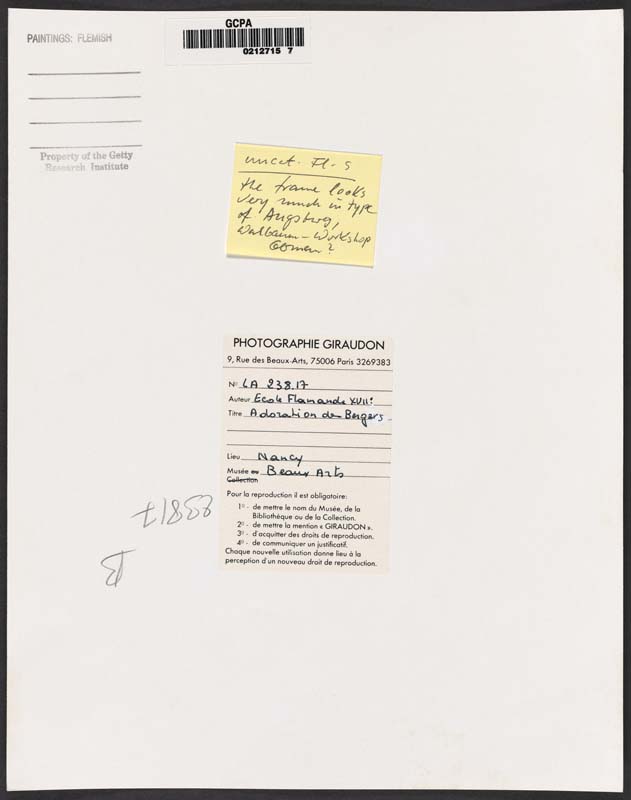 PAINTINGS: FLEMISH
GCPA
0212715 7
Property of the Getty
Research Institute
uncat. Fl. S
the frame looks
very much in type
of Augsburg,
Walbaum-Workshop
PHOTOGRAPHIE GIRAUDON
9, Rue des Beaux-Arts, 75006 Paris 3269383
No LA 238.17
Auteur Ecole Flamande XVIIe
Titre Adoration des Bergers
Lieu Nancy
Musée ou Beaux Arts
Collection
Pour la reproduction il est obligatoire:
1o - de mettre le nom du Musée, de la
Bibliothèque ou de la Collection.
2o - de mettre la mention « GIRAUDON ».
3o - d'acquitter des droits de reproduction.
4o - de communiquer un justificatif.
Chaque nouvelle utilisation donne lieu à la
perception d'un nouveau droit de reproduction.